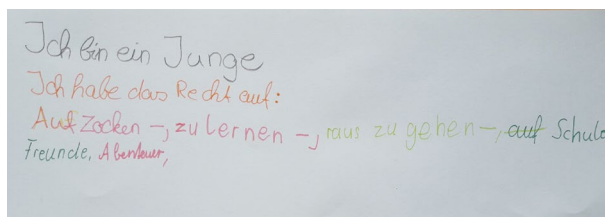 Ich bin ein Junge
Ich habe das Recht auf:
Auf Zocken –, zu lernen –, raus zu gehen –, auf Schule
Freunde, Abenteuer,